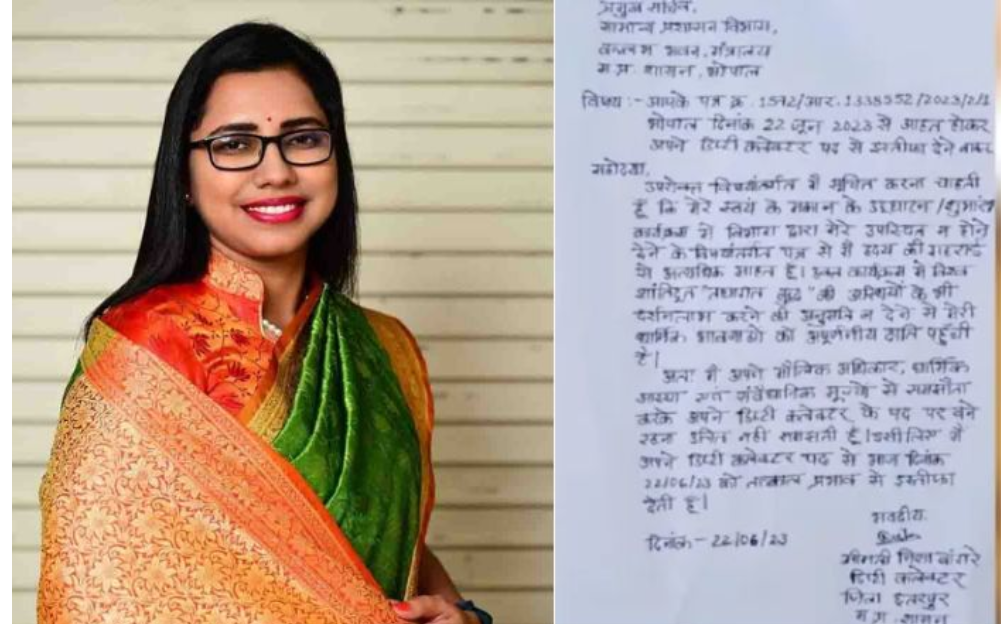 प्रमुख सचिव,
सामान्य प्रशासन विभाग,
वल्लभ भवन, मंत्रालय
म.प्र. शासन, भोपाल
विषय :- आपके पत्र क्र. 1592/आर.1338552/2023/2/1
भोपाल दिनांक 22 जून 2023 से आहत होकर
अपने डिप्टी कलेक्टर पद से इस्तीफा देने बाबत
महोदया,
उपरोक्त विषयांतर्गत में सूचित करना चाहती
हूँ कि मेरे स्वयं के मकान के उद्घाटन /शुभारंभ
कार्यक्रम में विभाग द्वारा मेरे उपस्थित न होने
देने के विषयांतर्गत पत्र से मैं हृदय की गहराई
से अत्यधिक आहत हूँ। उक्त कार्यक्रम में विश्व
शांतिदूत "तथागत बुद्ध" की अस्थियों के भी
दर्शनलाभ करने की अनुमति न देने से मेरी
धार्मिक भावनाओं को अपूर्णनीय क्षति पहुँची
है।
अतः मैं अपने मौलिक अधिकार, धार्मिक
आस्था एवं संवैधानिक मूल्यों से समझौता
करके अपने डिप्टी कलेक्टर के पद पर बने
रहना उचित नहीं समझती हूँ। इसीलिए मैं
अपने डिप्टी कलेक्टर पद से आज दिनांक
22/06/23 को तत्काल प्रभाव से इस्तीफा
देती हूँ।
भवदीय
दिनांक - 22/06/23
श्रीमती निशा बांगरे
डिप्टी कलेक्टर
जिला छतरपुर
म.प्र. शासन